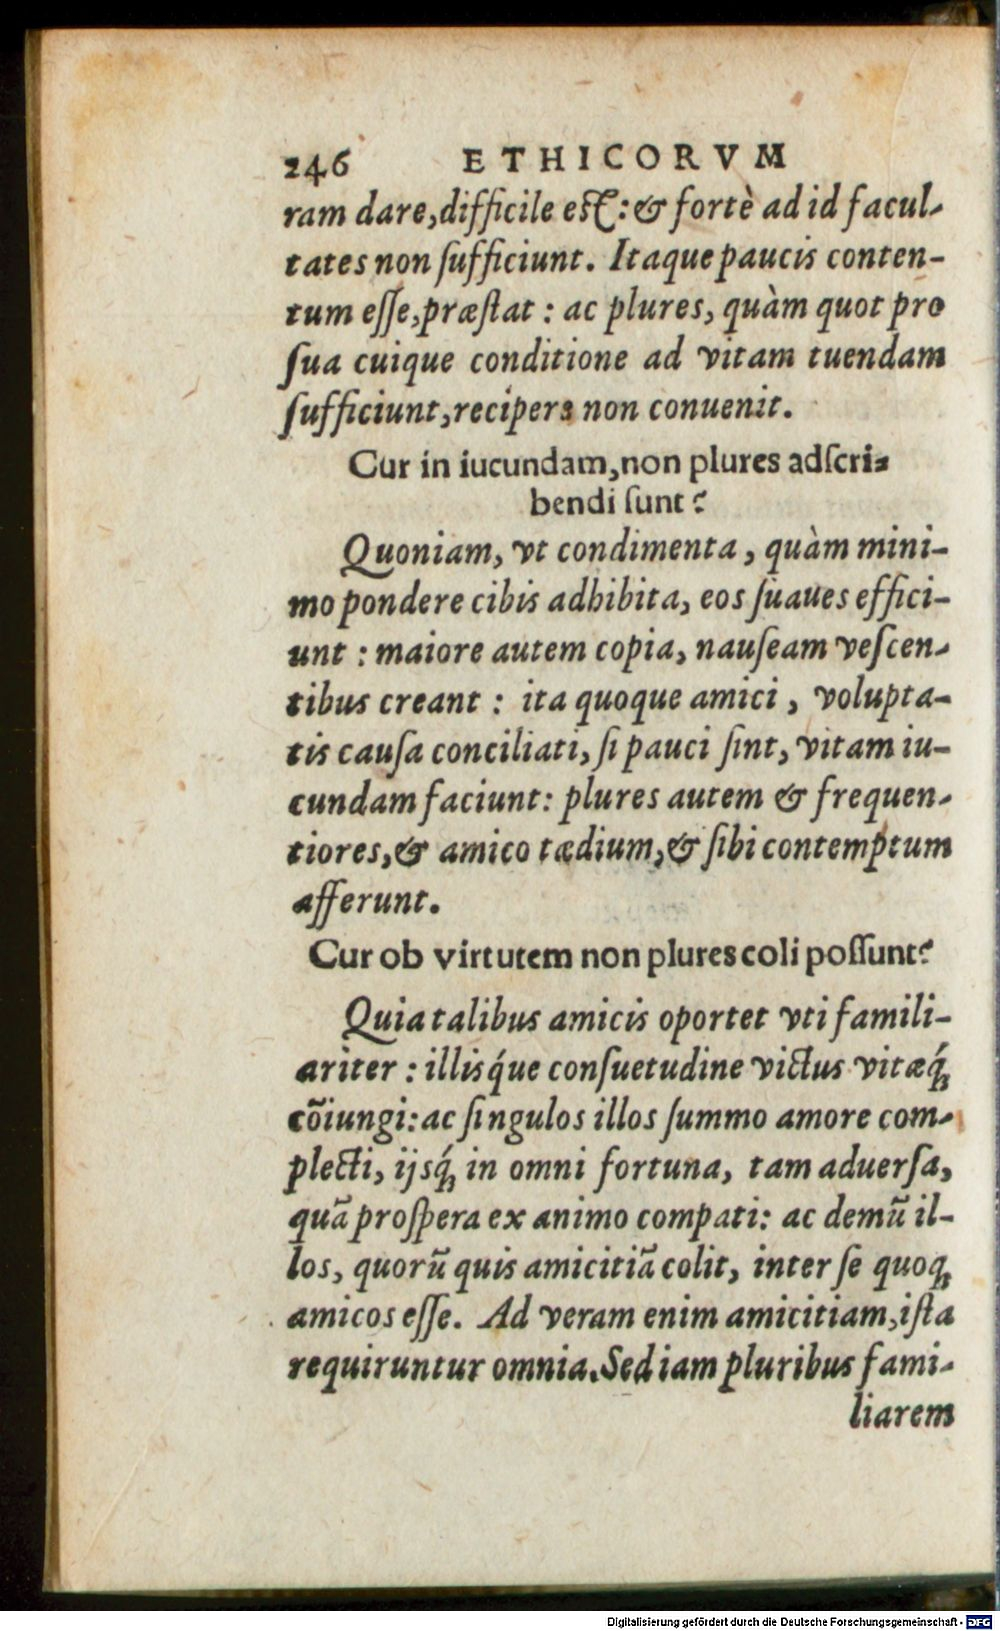 246 ETHICORVM
ram dare,difficile est:& fortè ad id facul-
tates non ſufficiunt. Itaque paucis conten-
tum eſſe,præſtat : ac plures, quàm quot pro
ſua cuique conditione ad vitam tuendam
ſufficiunt,recipere non conuenit.
Cur in iucundam,non plures adſcri-
bendi ſunt?
Quoniam, vt condimenta, quàm mini-
mo pondere cibis adhibita, eos ſuaues effici-
unt : maiore autem copia, nauſeam veſcen-
tibus creant : ita quoque amici, volupta-
tis cauſa conciliati, ſi pauci ſint, vitam iu-
cundam faciunt: plures autem & frequen-
tiores,& amico tædium,& ſibi contemptum
afferunt.
Cur ob virtutem non plures coli poſſunt?
Quia talibus amicis oportet vti famili-
ariter : illisq́ue conſuetudine victus vitæq́;
cōiungi: ac ſingulos illos ſummo amore com-
plecti, ijsq́; in omni fortuna, tam aduerſa,
quā proſpera ex animo compati: ac demū il-
los, quorū quis amicitiā colit, inter ſe quoq;
amicos eſſe. Ad veram enim amicitiam,iſta
requiruntur omnia.Sed iam pluribus fami-
liarem
Digitalisierung gefördert durch die Deutsche Forschungsgemeinschaft - DFG